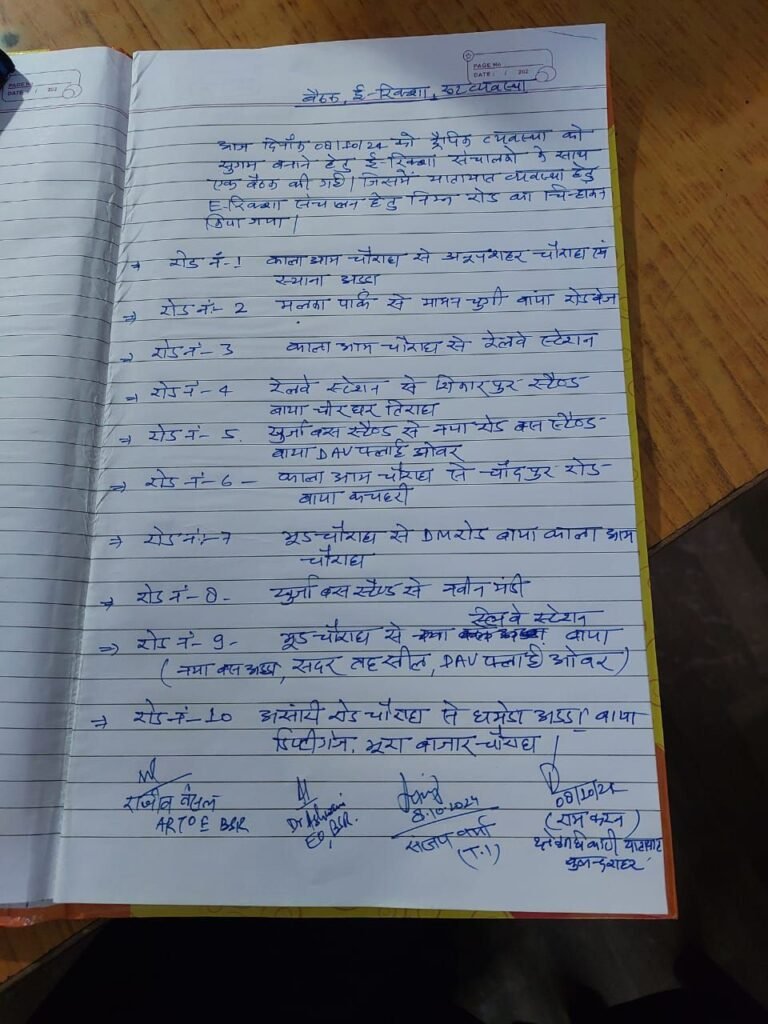 PAGE No.
DATE: / 202
बैठक, ई-रिक्शा, रूट व्यवस्था
आज दिनाँक 08/10/24 को ट्रैफिक व्यवस्था को
सुगम बनाने हेतु ई-रिक्शा संचालको के साथ
एक बैठक की गई। जिसमें यातायात व्यवस्था हेतु
E-रिक्शा संचालन हेतु निम्न रोड का चिन्हांकन
किया गया।
→ रोड नं-1 काला आम चौराहा से अनूपशहर चौराहा एवं
स्याना अड्डा
⇒ रोड नं:- 2 मलका पार्क से मामन चुंगी वाया रोडवेज
⇒ रोड नं- 3 काला आम चौराहा से रेलवे स्टेशन
⇒ रोड नं- 4 रेलवे स्टेशन से शिकारपुर स्टैण्ड
वाया चीरघर तिराहा
⇒ रोड नं- 5. खुर्जा बस स्टैण्ड से नया रोड बस स्टैण्ड
वाया DAV फ्लाई ओवर
⇒ रोड नं- 6 - काला आम चौराहा से चाँदपुर रोड
वाया कचहरी
⇒ रोड नं:- 7 भूड चौराहा से DM रोड वाया काला आम
चौराहा
⇒ रोड नं- 8- खुर्जा बस स्टैण्ड से नवीन मंडी
रेलवे स्टेशन
⇒ रोड नं- 9- भूड चौराहा से वाया
(नया बस अड्डा, सदर तहसील, DAV फ्लाई ओवर)
⇒ रोड नं- 10 अंसारी रोड चौराहा से धमेडा अड्डा वाया
डिप्टीगंज, भूरा बाजार चौराहा
राजीव बंसल
ARTO E BSR
Dr Ashwani
EO, BSR.
8.10.2024
संजय वर्मा
(T.I)
08/10/24
(राम करन)
यातायात
बुलन्दशहर